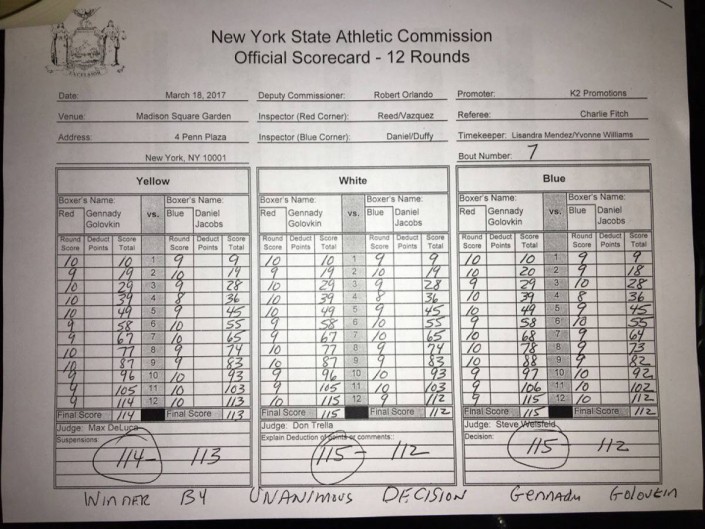 EXCELSIOR
New York State Athletic Commission
Official Scorecard - 12 Rounds
Date: March 18, 2017 Deputy Commissioner: Robert Orlando Promoter: K2 Promotions
Venue: Madison Square Garden Inspector (Red Corner): Reed/Vazquez Referee: Charlie Fitch
Address: 4 Penn Plaza Inspector (Blue Corner): Daniel/Duffy Timekeeper: Lisandra Mendez/Yvonne Williams
New York, NY 10001 Bout Number: 7
Yellow White Blue
Boxer's Name: Boxer's Name: Boxer's Name: Boxer's Name: Boxer's Name: Boxer's Name:
Red Gennady Golovkin vs. Blue Daniel Jacobs Red Gennady Golovkin vs. Blue Daniel Jacobs Red Gennady Golovkin vs. Blue Daniel Jacobs
Round Score Deduct Points Score Total Round Score Deduct Points Score Total Round Score Deduct Points Score Total Round Score Deduct Points Score Total Round Score Deduct Points Score Total Round Score Deduct Points Score Total
10 10 1 9 9 10 10 1 9 9 10 10 1 9 9
9 19 2 10 19 9 19 2 10 19 10 20 2 9 18
10 29 3 9 28 10 29 3 9 28 9 29 3 10 28
10 39 4 8 36 10 39 4 8 36 10 39 4 8 36
10 49 5 9 45 10 49 5 9 45 10 49 5 9 45
9 58 6 10 55 9 58 6 10 55 9 58 6 10 55
9 67 7 10 65 9 67 7 10 65 10 68 7 9 64
10 77 8 9 74 10 77 8 9 74 10 78 8 9 73
10 87 9 9 83 10 87 9 9 83 10 88 9 9 82
9 96 10 10 93 9 96 10 10 93 9 97 10 10 92
9 105 11 10 103 9 105 11 10 103 9 106 11 10 102
9 114 12 10 113 10 115 12 9 112 9 115 12 10 112
Final Score 114 Final Score 113 Final Score 115 Final Score 112 Final Score 115 Final Score 112
Judge: Max DeLuca Judge: Don Trella Judge: Steve Weisfeld
Suspensions Explain Deduction of points or comments: Decision:
114- 113 115- 112 115 112
WINNER BY UNANIMOUS DECISION GENNADY GOLOVKIN